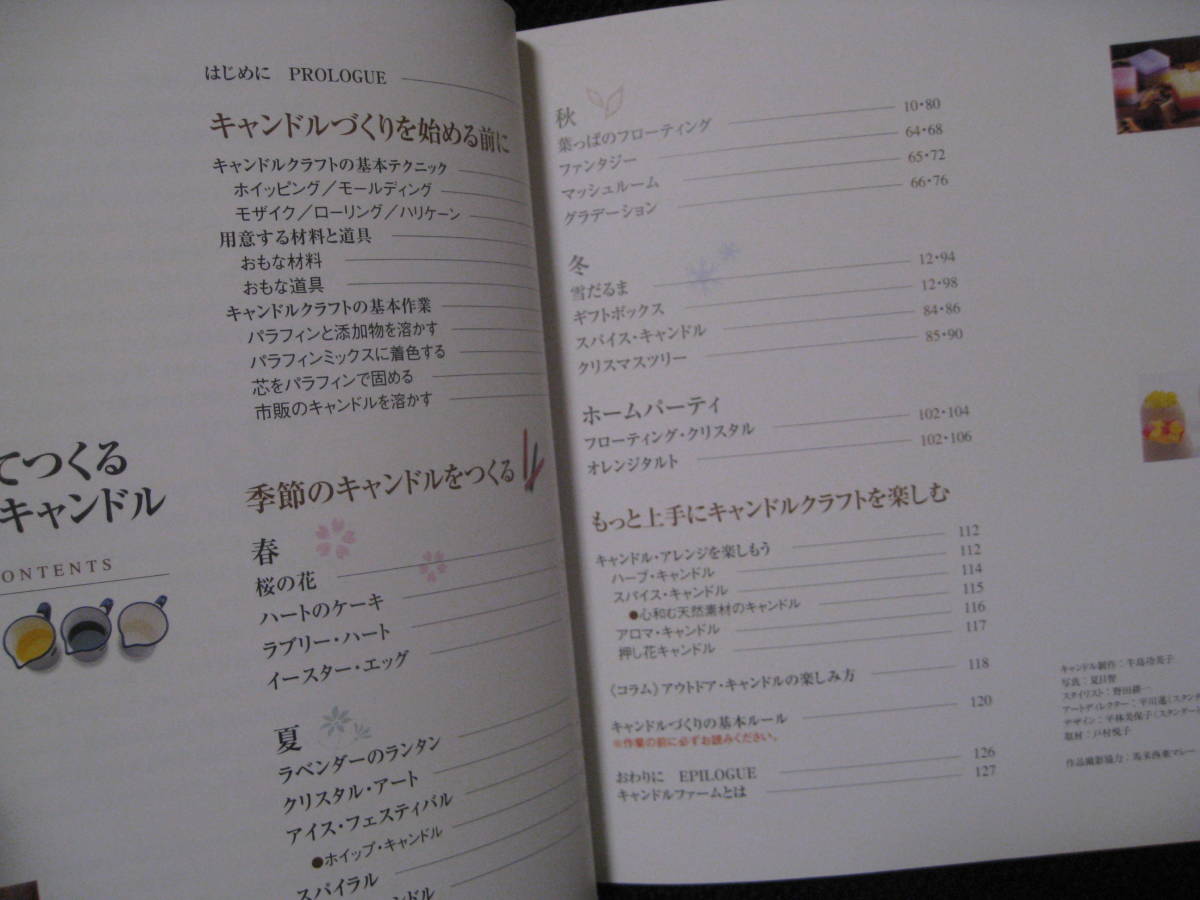 てつくる
キャンドル
CONTENTS
はじめに PROLOGUE
キャンドルづくりを始める前に
キャンドルクラフトの基本テクニック
ホイッピング／モールディング
モザイク／ローリング／ハリケーン
用意する材料と道具
おもな材料
おもな道具
キャンドルクラフトの基本作業
パラフィンと添加物を溶かす
パラフィンミックスに着色する
芯をパラフィンで固める
市販のキャンドルを溶かす
季節のキャンドルをつくる
春
桜の花
ハートのケーキ
ラブリー・ハート
イースター・エッグ
夏
ラベンダーのランタン
クリスタル・アート
アイス・フェスティバル
●ホイップ・キャンドル
スパイラル
ンドル
秋
葉っぱのフローティング 10・80
ファンタジー 64・68
マッシュルーム 65・72
グラデーション 66・76
冬
雪だるま 12・94
ギフトボックス 12・98
スパイス・キャンドル 84・86
クリスマスツリー 85・90
ホームパーティ
フローティング・クリスタル 102・104
オレンジタルト 102・106
もっと上手にキャンドルクラフトを楽しむ
キャンドル・アレンジを楽しもう 112
ハーブ・キャンドル 112
スパイス・キャンドル 114
●心和む天然素材のキャンドル 115
アロマ・キャンドル 116
押し花キャンドル 117
《コラム》アウトドア・キャンドルの楽しみ方 118
キャンドルづくりの基本ルール 120
※作業の前に必ずお読みください。
おわりに EPILOGUE 126
キャンドルファームとは 127
キャンドル制作：
写真：夏目智
スタイリスト：野田耕一
アートディレクター：平川進（スタンダ
デザイン：平林美保子（スタンダー
取材：戸村悦子
作品撮影協力：